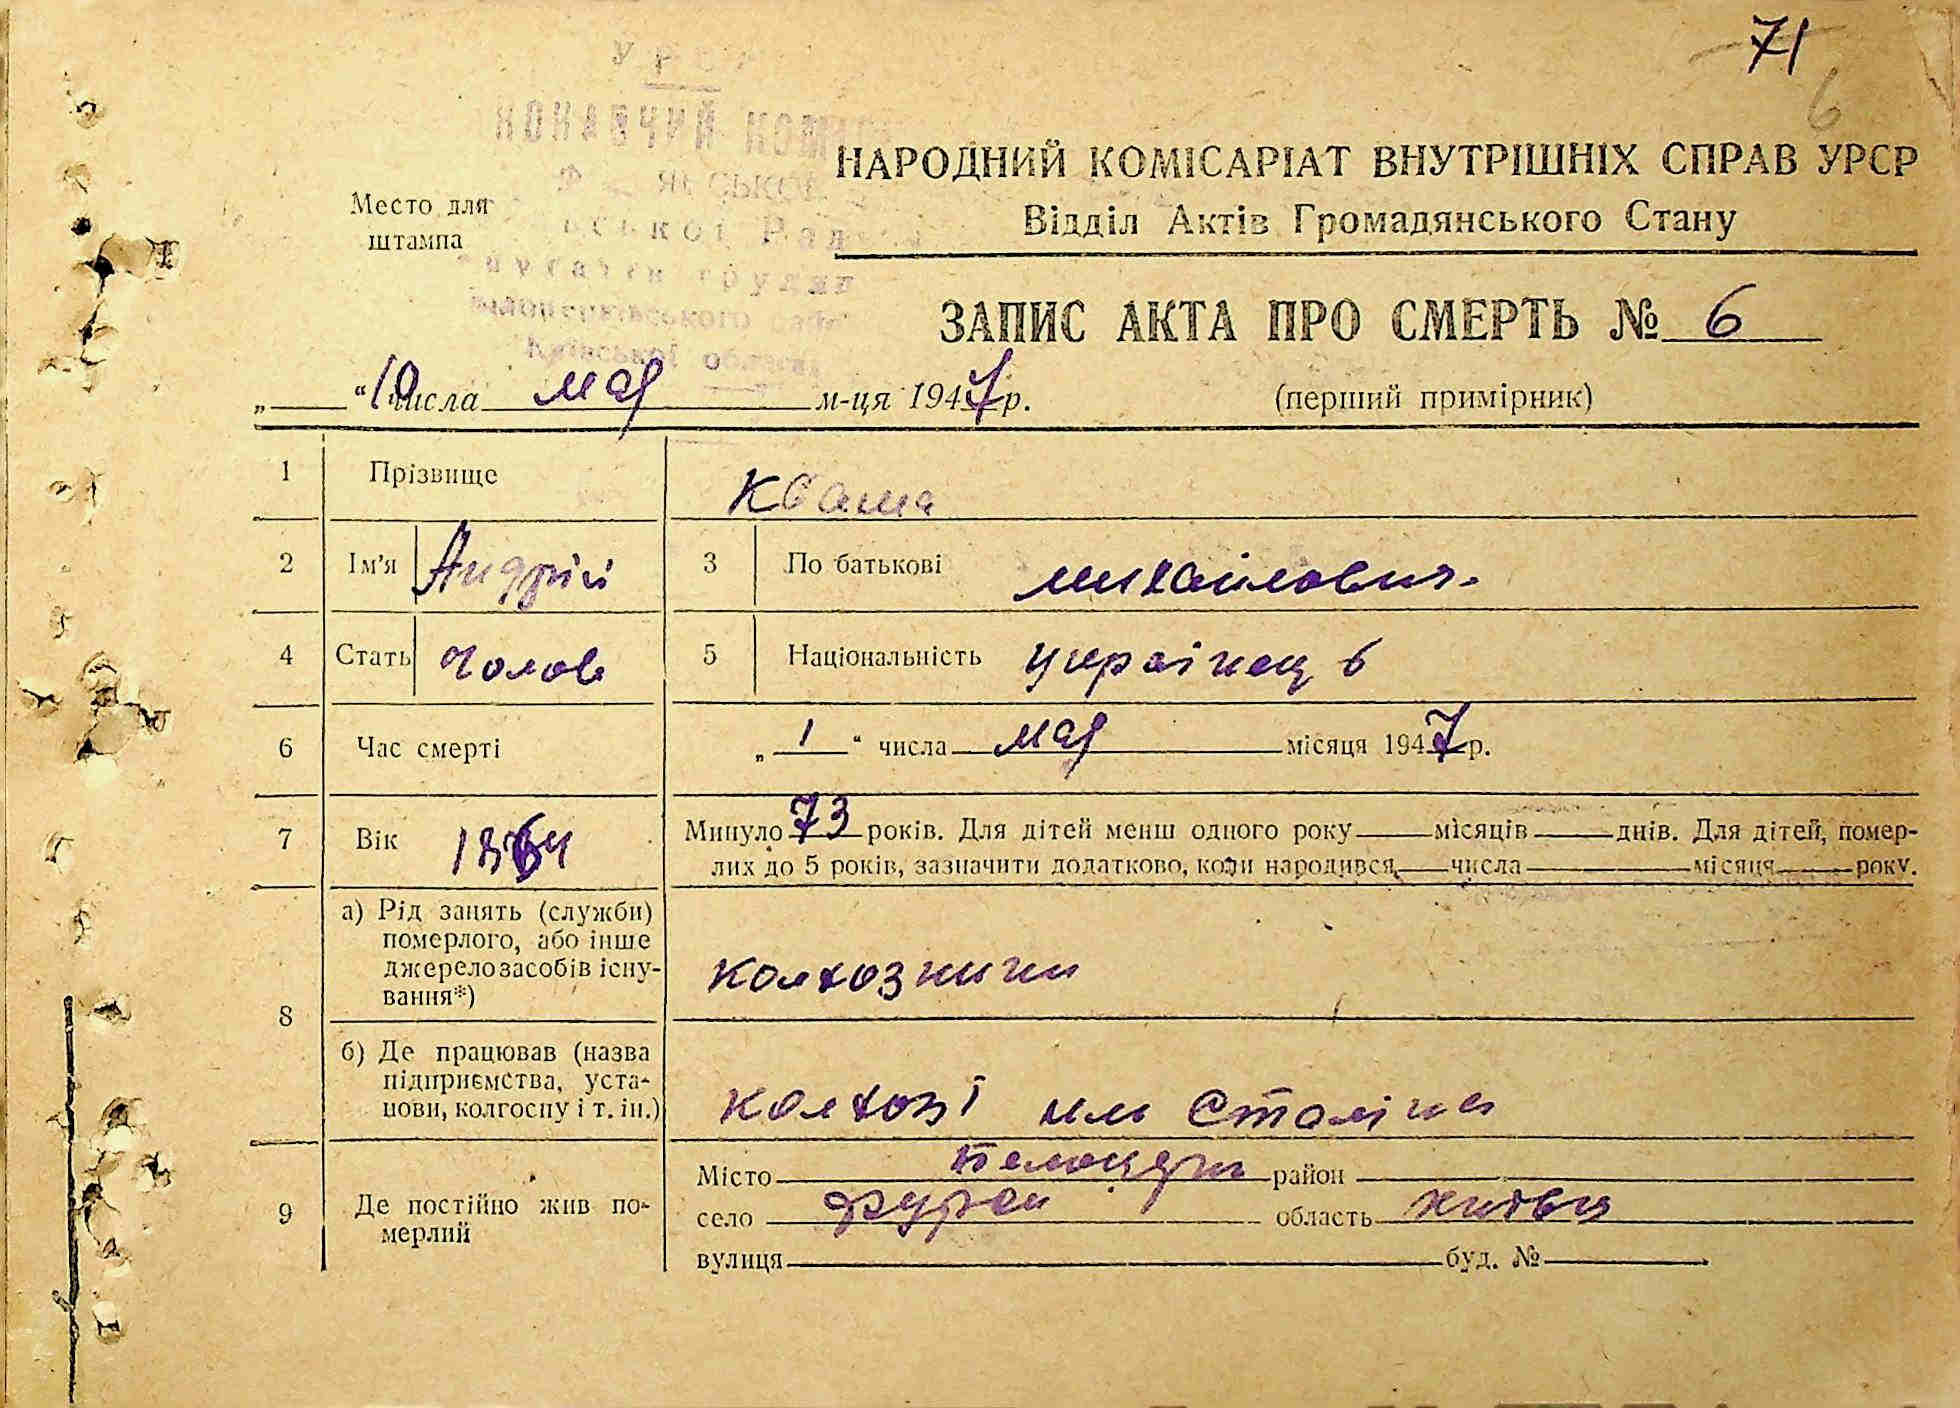 71
6
НАРОДНИЙ КОМІСАРІАТ ВНУТРІШНІХ СПРАВ УРСР
Відділ Актів Громадянського Стану
Место для
штампа
Київської
ЗАПИС АКТА ПРО СМЕРТЬ № 6
„ “ 10 числа мая м-ця 1947 р. (перший примірник)
1 Прізвище Кваша
2 Ім'я Андрій 3 По батькові михайлович.
4 Стать Чолов 5 Національність українец
6 Час смерті „ 1 “ числа мая місяця 1947 р.
7 Вік Минуло 73 років. Для дітей менш одного року місяців днів. Для дітей, помер-
лих до 5 років, зазначити додатково, коли народився, числа місяця року.
8 а) Рід занять (служби)
померлого, або інше
джерело засобів існу-
вання*)
колхозники
б) Де працював (назва
підприємства, уста-
нови, колгоспу і т. ін.)
колхозі им Сталіна
9 Де постійно жив по-
мерлий
Місто Белоцерк район
село Фурси область
вулиця буд. №